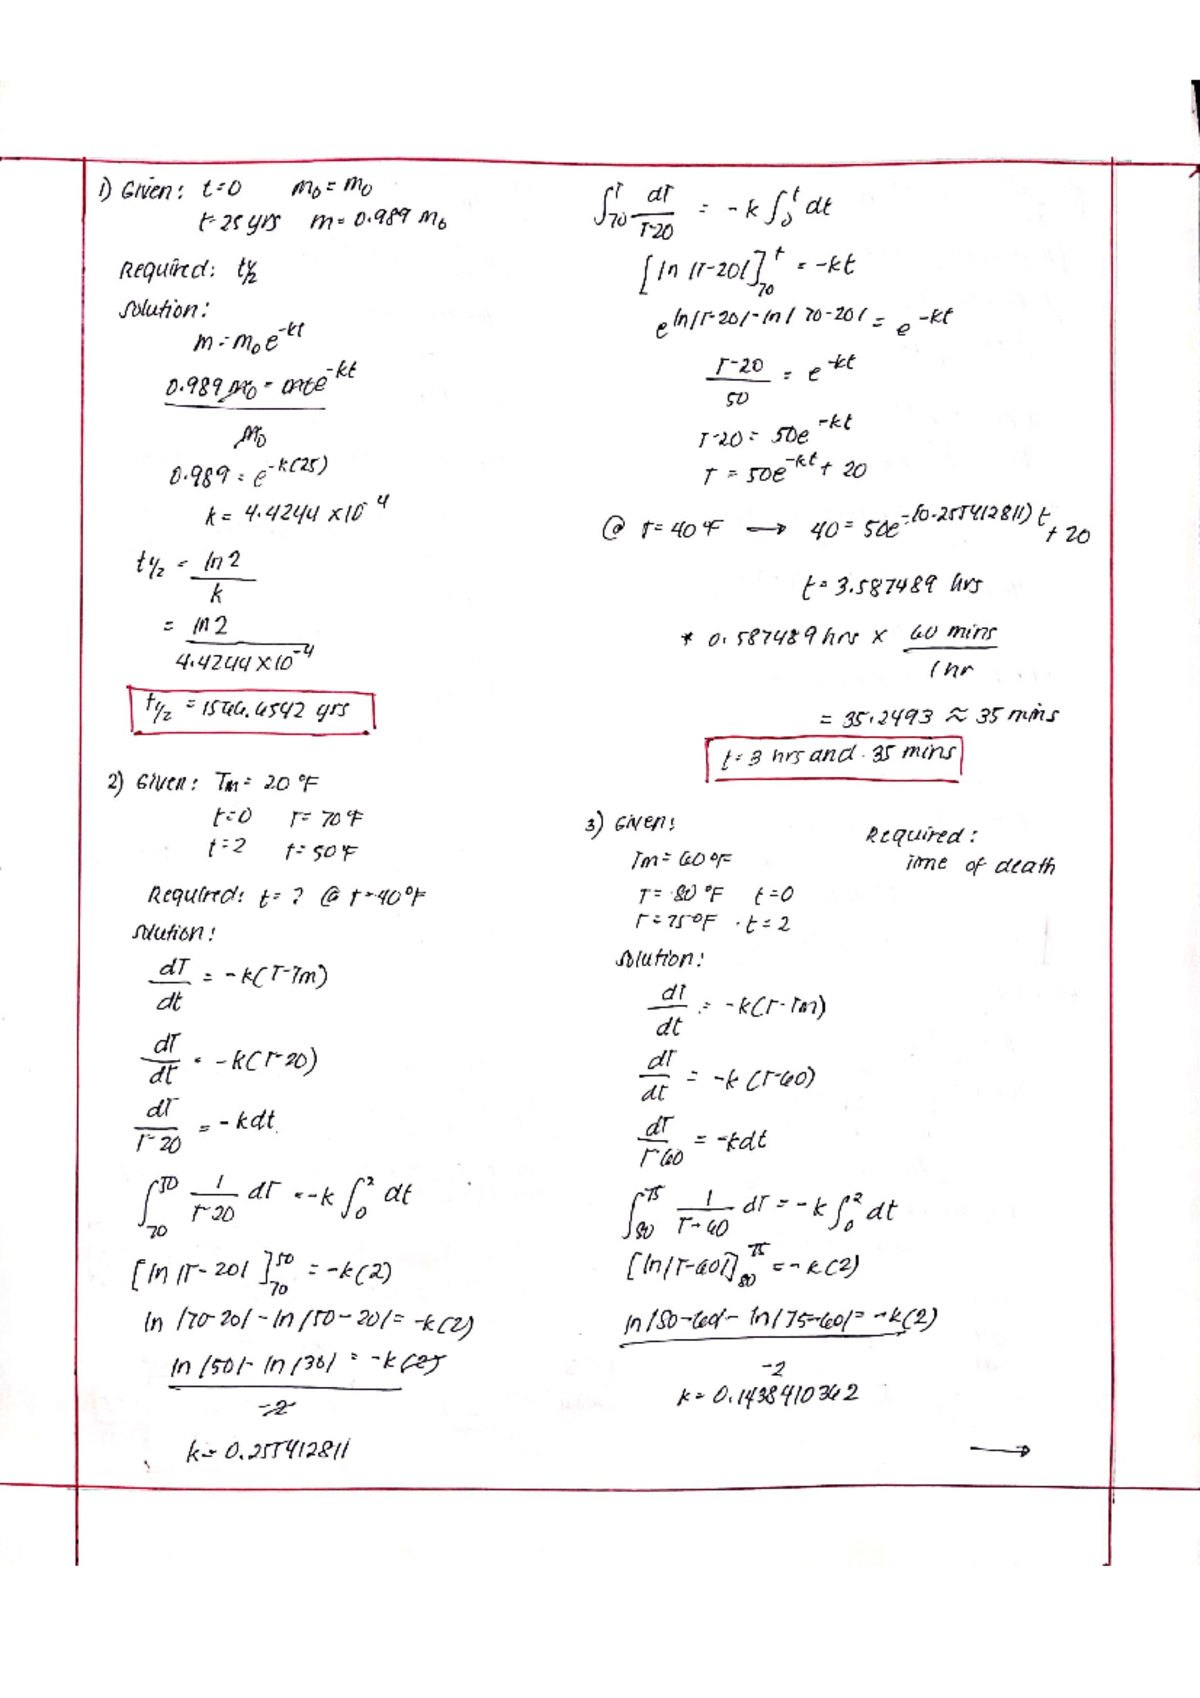 1) Given: t=0 m₀ = m₀
t=25 yrs m = 0.989 m₀
Required: t½
Solution:
m = m₀e^-kt
0.989 m₀ = m₀e^-kt
m₀
0.989 = e^-k(25)
k = 4.4244 x10^-4
t½ = ln 2
k
= ln 2
4.4244 x10^-4
t½ = 1566.6542 yrs
2) Given: Tm = 20 °F
t=0 T= 70 °F
t=2 t= 50 °F
Required: t = ? @ T=40°F
Solution:
dT/dt = -k(T-Tm)
dT/dt = -k(T-20)
dT/T-20 = -kdt
∫₇₀^50 1/T-20 dT = -k ∫₀^2 dt
[ln |T-20| ]₇₀^50 = -k(2)
ln |70-20| - ln |50-20| = -k(2)
ln |50| - ln |30| = -k(2)
-2
k = 0.255412811
∫₇₀^T dT/T-20 = -k ∫₀^t dt
[ln |T-20|]₇₀^t = -kt
e^ln|T-20|-ln|70-20| = e^-kt
T-20/50 = e^-kt
T-20 = 50e^-kt
T = 50e^-kt + 20
@ T=40°F → 40 = 50e^-(0.255412811)t + 20
t = 3.587489 hrs
* 0.587489 hrs x 60 mins
1 hr
= 35.2493 ≈ 35 mins
t= 3 hrs and 35 mins
3) Given: Required:
Tm = 60 °F Time of death
T = 80 °F t=0
T = 75°F t=2
Solution:
dT/dt = -k(T-Tm)
dT/dt = -k (T-60)
dT/T-60 = -kdt
∫₈₀^75 1/T-60 dT = -k ∫₀^2 dt
[ln|T-60|]₈₀^75 = -k(2)
ln|80-60| - ln|75-60| = -k(2)
-2
k = 0.1438410362
→